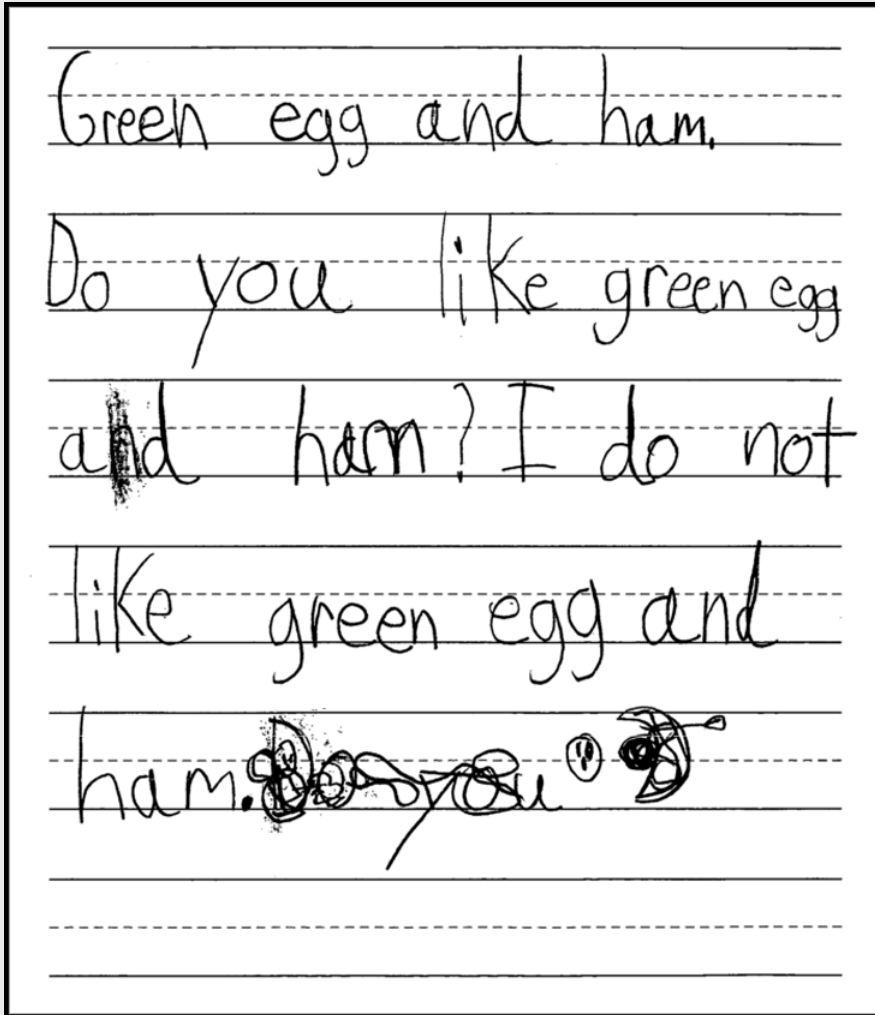 Green egg and ham.
Do you like green egg
and ham? I do not
like green egg and
ham. Do you